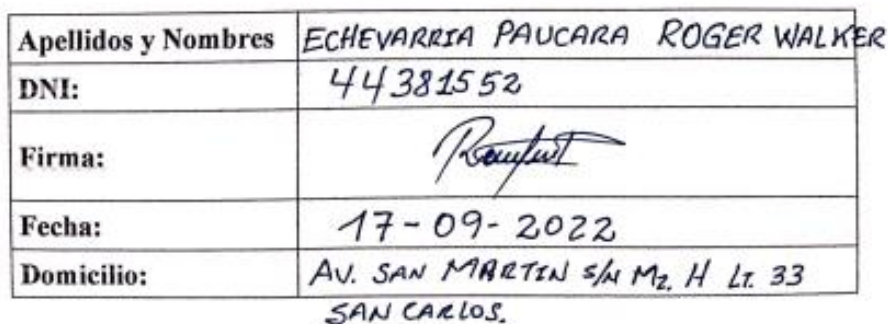 Apellidos y Nombres ECHEVARRIA PAUCARA ROGER WALKER
DNI: 44381552
Firma:
Fecha: 17-09-2022
Domicilio: AV. SAN MARTIN S/N Mz. H LT. 33
SAN CARLOS.